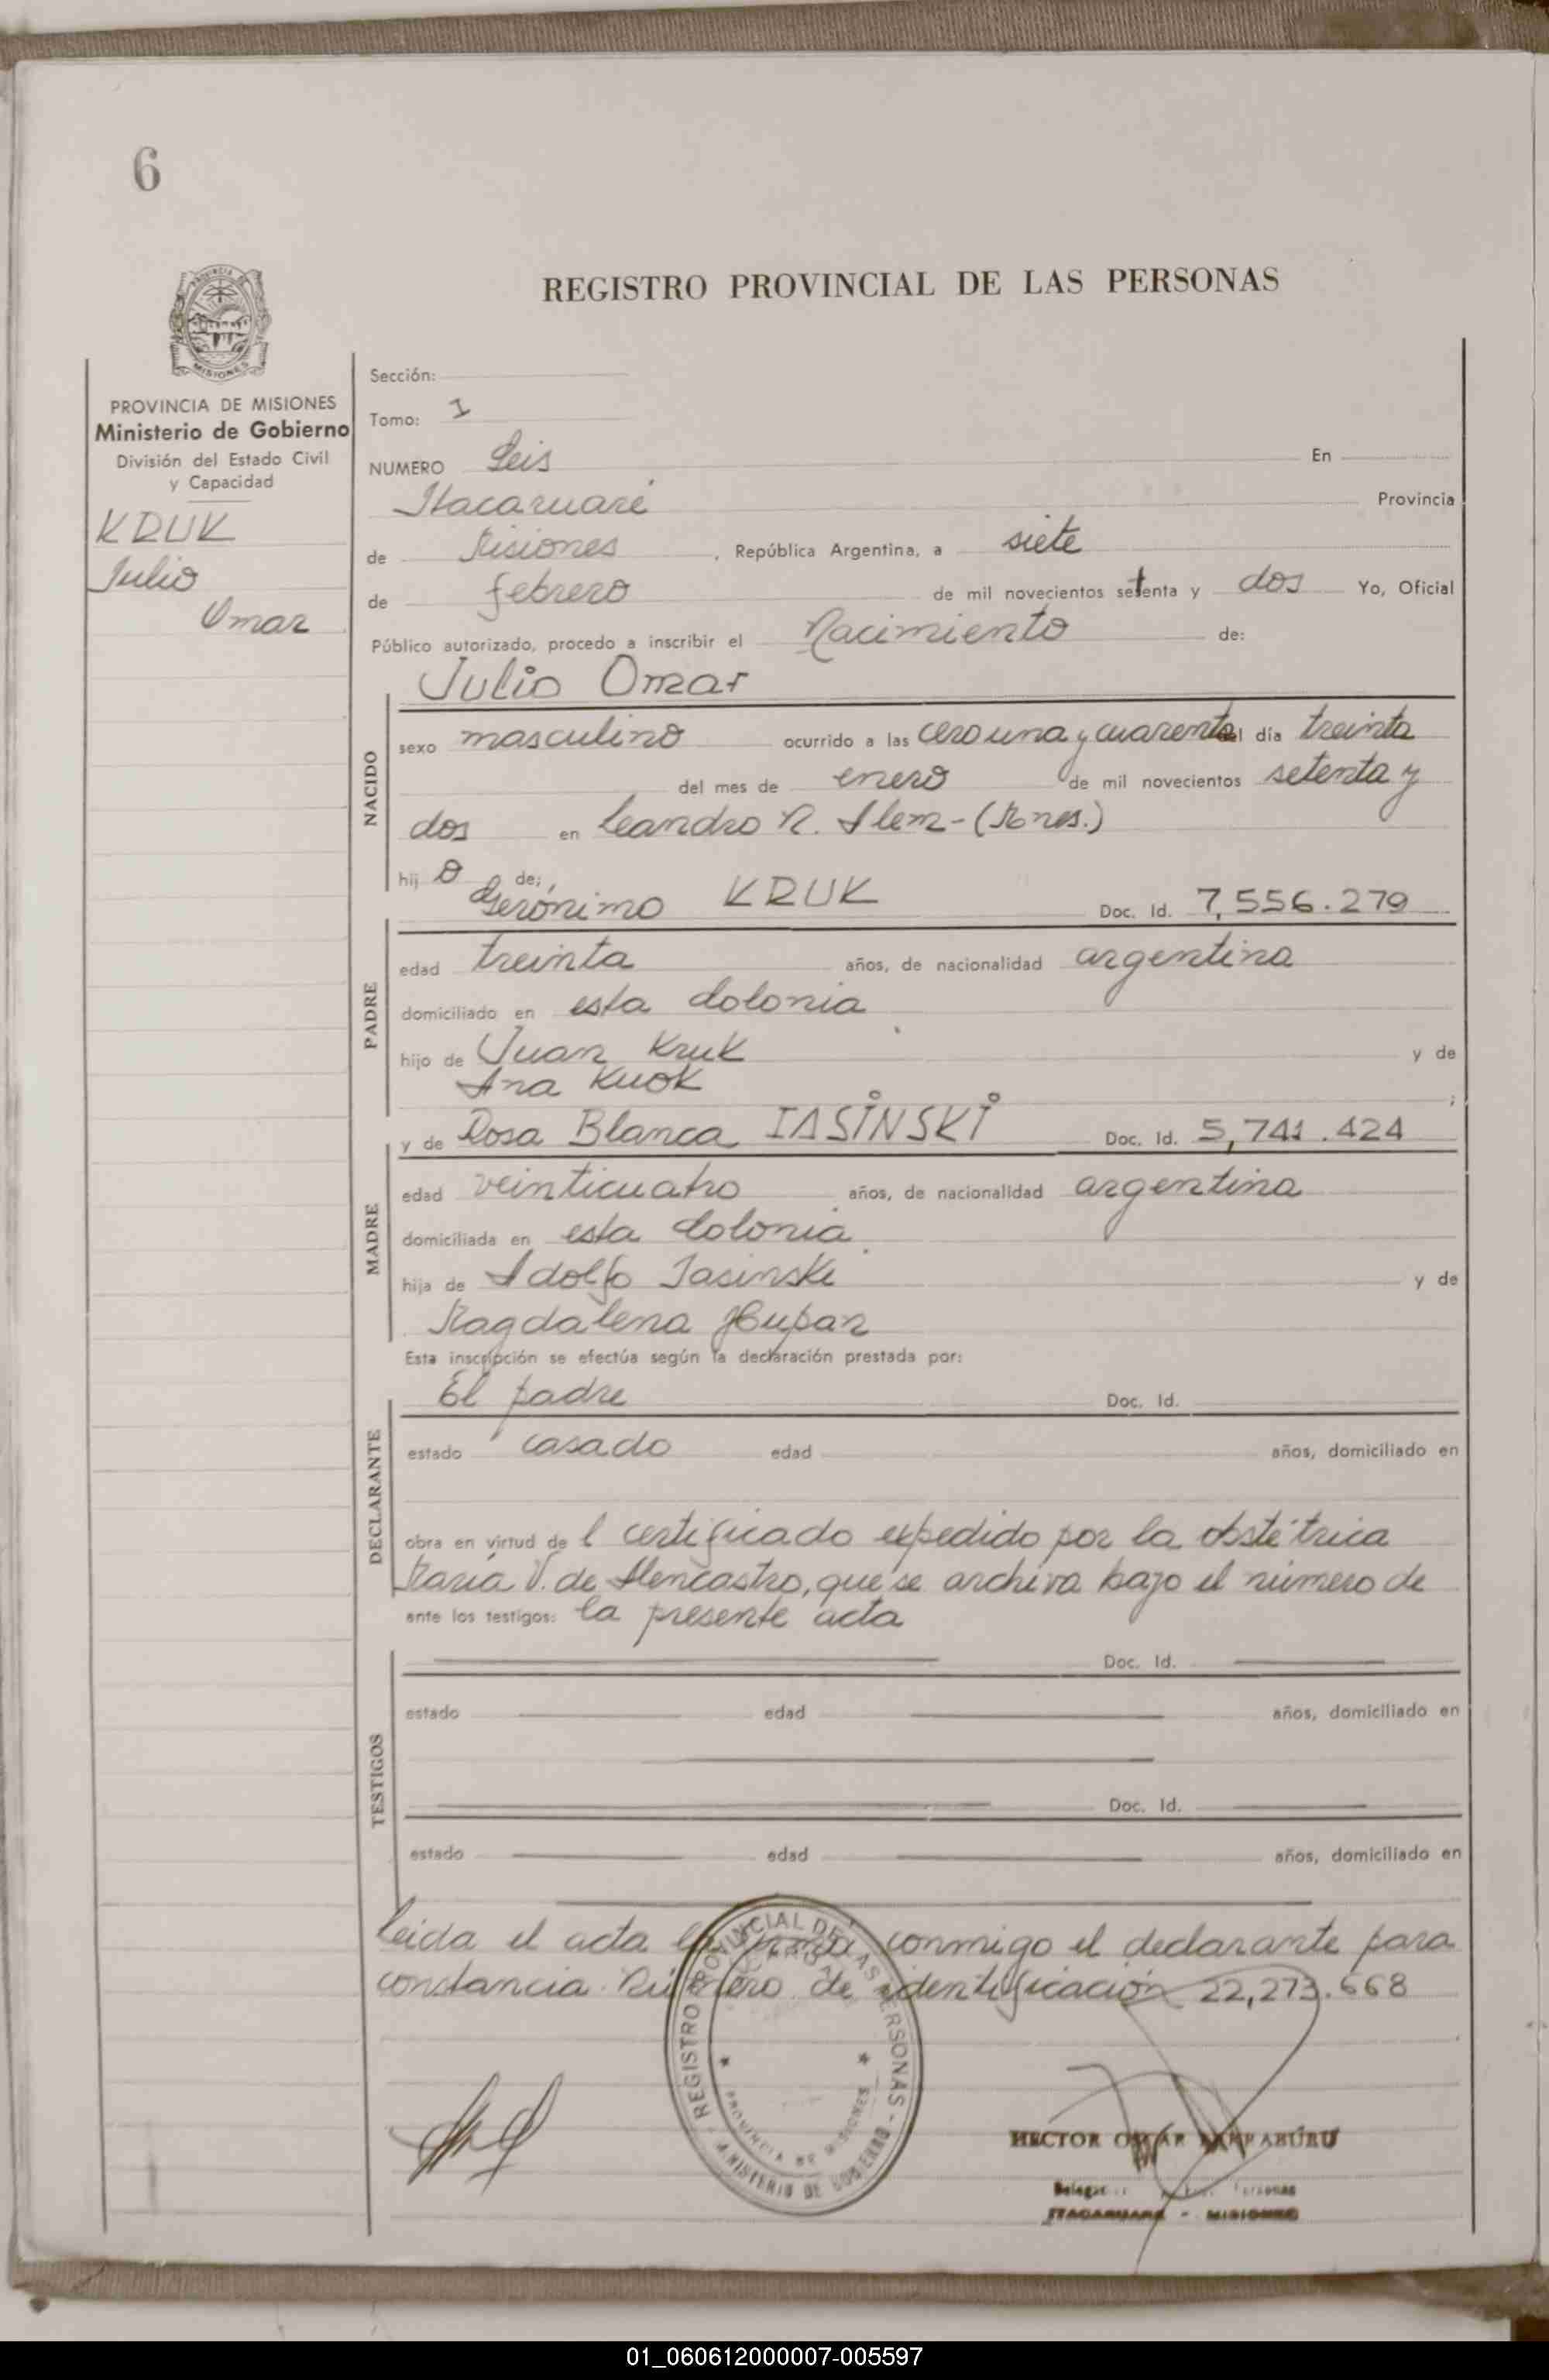 6
REGISTRO PROVINCIAL DE LAS PERSONAS
PROVINCIA DE MISIONES
Ministerio de Gobierno
División del Estado Civil
y Capacidad
KRUK
Julio
Omar
Sección:
Tomo: I
NUMERO Seis En
Itacaruaré Provincia
de Misiones, República Argentina, a siete
de febrero de mil novecientos setenta y dos Yo, Oficial
Público autorizado, procedo a inscribir el Nacimiento de:
Julio Omar
NACIDO
sexo masculino ocurrido a las cero una y cuarenta del día treinta
del mes de enero de mil novecientos setenta y
dos en Leandro N. Alem-(Mnes.)
hijo de:
Gerónimo KRUK Doc. Id. 7,556.279
PADRE
edad treinta años, de nacionalidad argentina
domiciliado en esta Colonia
hijo de Juan Kruk y de
Ana Kuok ;
y de Rosa Blanca IASINSKI Doc. Id. 5,741.424
MADRE
edad veinticuatro años, de nacionalidad argentina
domiciliada en esta Colonia
hija de Adolfo Iasinski y de
Magdalena Hupan
Esta inscripción se efectúa según la declaración prestada por:
El padre Doc. Id.
DECLARANTE
estado casado edad años, domiciliado en
obra en virtud del certificado expedido por la obstétrica
María V. de Alencastro, que se archiva bajo el número de
ante los testigos: la presente acta
Doc. Id.
TESTIGOS
estado edad años, domiciliado en
Doc. Id.
estado edad años, domiciliado en
leida el acta la firma conmigo el declarante para
constancia. Número de identificación 22,273.668
REGISTRO PROVINCIAL DE LAS PERSONAS - MINISTERIO DE GOBIERNO
PROVINCIA DE MISIONES
HECTOR OMAR LARRABURU
Personas
ITACARUARE - MISIONES
01_060612000007-005597